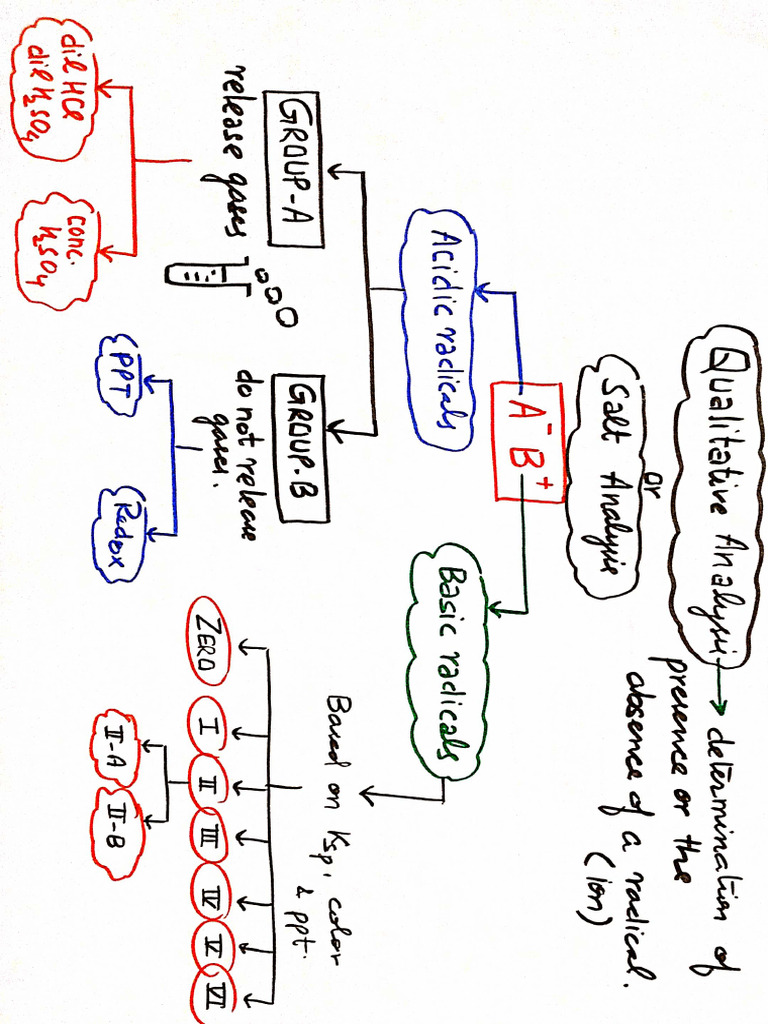 Qualitative Analysis → determination of
presence or the
absence of a radical.
(ion)
or
Salt Analysis
A⁻ B⁺
Acidic radicals
Basic radicals
GROUP-A
release gases
GROUP-B
do not release
gases.
dil HCl
dil H₂SO₄
conc.
H₂SO₄
PPT
Redox
Based on Ksp, color
& ppt.
ZERO
I
II
III
IV
V
VI
II-A
II-B